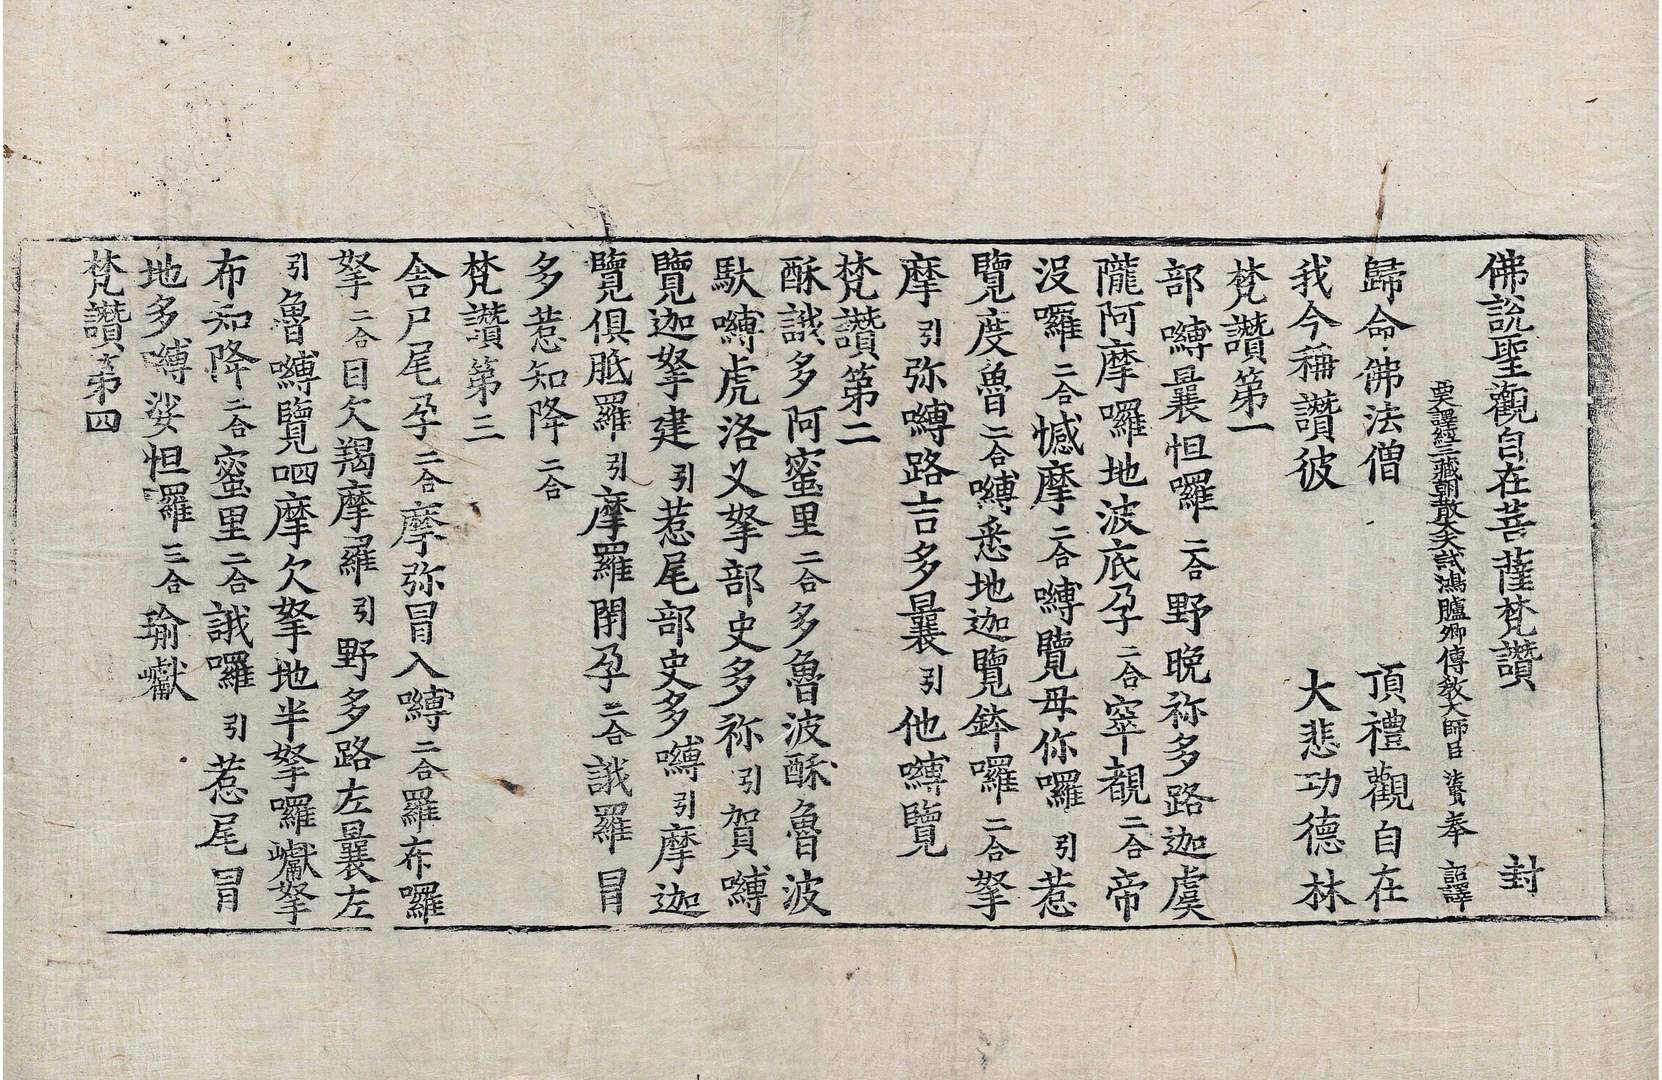 佛說聖觀自在菩薩梵讚 封
西天譯經三藏朝散大夫試鴻臚卿傳教大師臣法賢奉 詔譯
歸命佛法僧 頂禮觀自在
我今稱讚彼 大悲功德林
梵讚第一
部嚩曩怛囉二合野晚祢多路迦虞
隴阿摩囉地波底孕二合窣覩二合帝
没囉二合憾摩二合嚩覽毋你囉引惹
覽度魯二合嚩悉地迦覽鉢囉二合拏
摩引弥嚩路吉多曩引他嚩覽
梵讚第二
酥誐多阿蜜里二合多魯波酥魯波
馱嚩虎洛叉拏部史多祢引賀嚩
覽迦拏建引惹尾部史多嚩引摩迦
覽俱胝羅引摩羅閉孕二合誐羅冒
多惹知降二合
梵讚第三
舍尸尾孕二合摩弥冒入嚩二合羅布囉
拏二合目欠羯摩羅引野多路左曩左
引魯嚩覽呬摩欠拏地半拏囉巘拏
布知降二合蜜里二合誐囉引惹尾冒
地多嚩娑怛羅三合瑜巘
梵讚第四